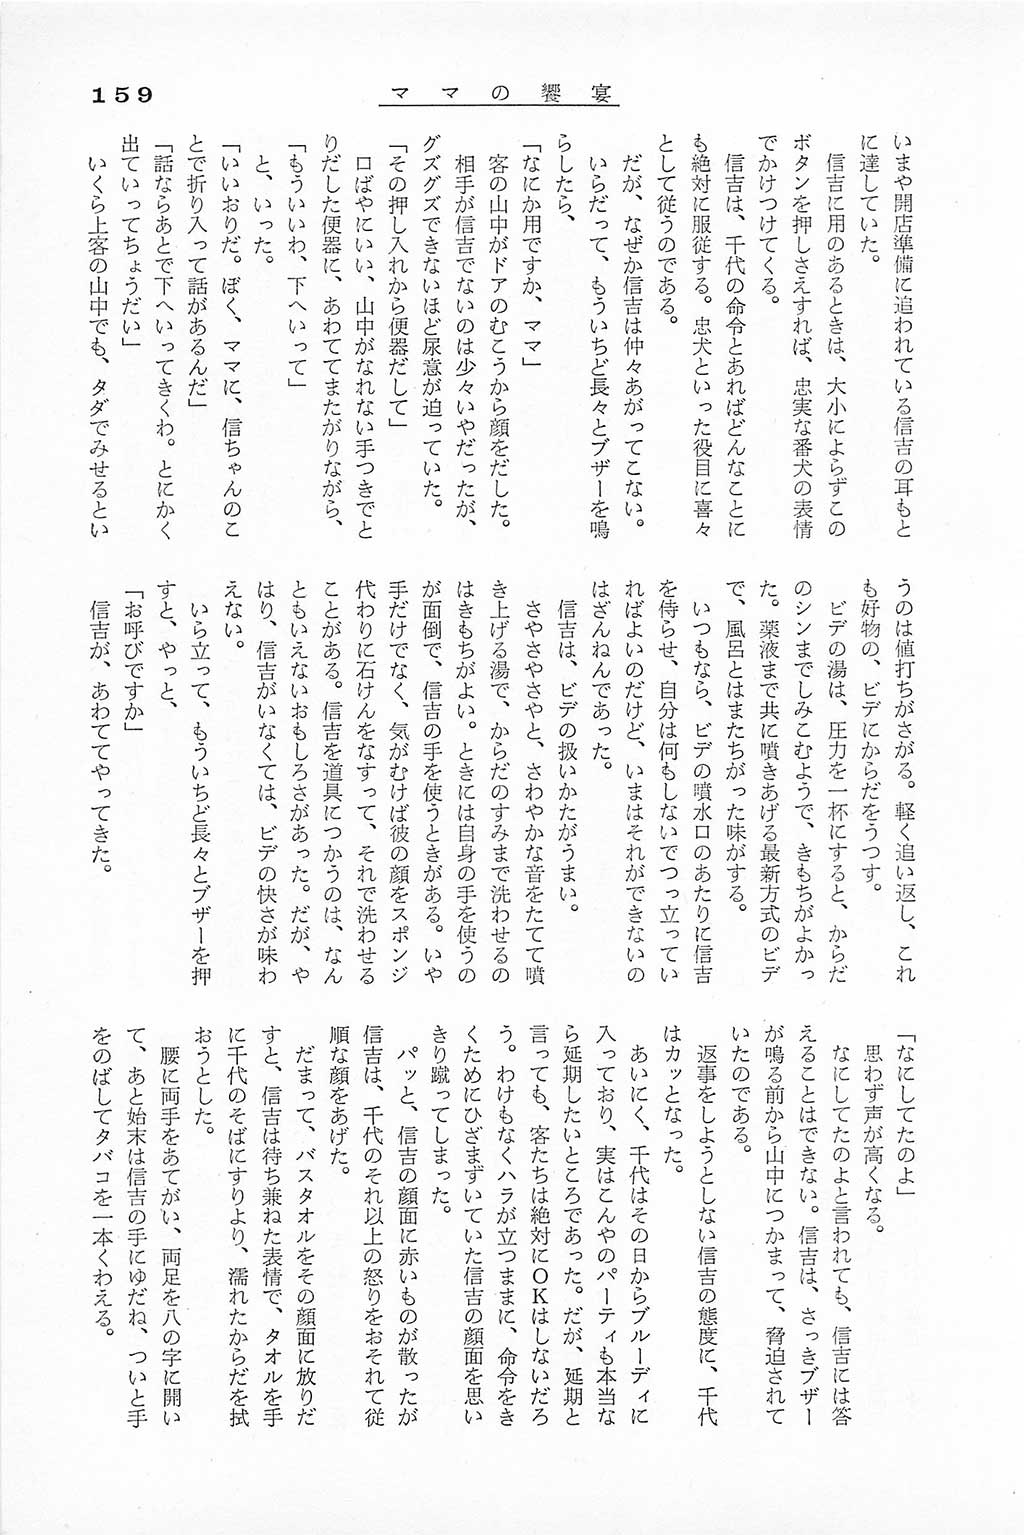 159
ママの饗宴
いまや開店準備に追われている信吉の耳もと
に達していた。
信吉に用のあるときは、大小によらずこの
ボタンを押しさえすれば、忠実な番犬の表情
でかけつけてくる。
信吉は、千代の命令とあればどんなことに
も絶対に服従する。忠犬といった役目に喜々
として従うのである。
だが、なぜか信吉は仲々あがってこない。
いらだって、もういちど長々とブザーを鳴
らしたら、
「なにか用ですか、ママ」
客の山中がドアのむこうから顔をだした。
相手が信吉でないのは少々いやだったが、
グズグズできないほど尿意が迫っていた。
「その押し入れから便器だして」
口ばやにいい、山中がなれない手つきでと
りだした便器に、あわててまたがりながら、
「もういいわ、下へいって」
と、いった。
「いいおりだ。ぼく、ママに、信ちゃんのこ
とで折り入って話があるんだ」
「話ならあとで下へいってきくわ。とにかく
出ていってちょうだい」
いくら上客の山中でも、タダでみせるとい
うのは値打ちがさがる。軽く追い返し、これ
も好物の、ビデにからだをうつす。
ビデの湯は、圧力を一杯にすると、からだ
のシンまでしみこむようで、きもちがよかっ
た。薬液まで共に噴きあげる最新方式のビデ
で、風呂とはまたちがった味がする。
いつもなら、ビデの噴水口のあたりに信吉
を侍らせ、自分は何もしないでつっ立ってい
ればよいのだけど、いまはそれができないの
はざんねんであった。
信吉は、ビデの扱いかたがうまい。
さやさやさやと、さわやかな音をたてて噴
き上げる湯で、からだのすみまで洗わせるの
はきもちがよい。ときには自身の手を使うの
が面倒で、信吉の手を使うときがある。いや
手だけでなく、気がむけば彼の顔をスポンジ
代わりに石けんをなすって、それで洗わせる
ことがある。信吉を道具につかうのは、なん
ともいえないおもしろさがあった。だが、や
はり、信吉がいなくては、ビデの快さが味わ
えない。
いら立って、もういちど長々とブザーを押
すと、やっと、
「お呼びですか」
信吉が、あわててやってきた。
「なにしてたのよ」
思わず声が高くなる。
なにしてたのよと言われても、信吉には答
えることはできない。信吉は、さっきブザー
が鳴る前から山中につかまって、脅迫されて
いたのである。
返事をしようとしない信吉の態度に、千代
はカッとなった。
あいにく、千代はその日からブルーディに
入っており、実はこんやのパーティも本当な
ら延期したいところであった。だが、延期と
言っても、客たちは絶対にOKはしないだろ
う。わけもなくハラが立つままに、命令をき
くためにひざまずいていた信吉の顔面を思い
きり蹴ってしまった。
パッと、信吉の顔面に赤いものが散ったが
信吉は、千代のそれ以上の怒りをおそれて従
順な顔をあげた。
だまって、バスタオルをその顔面に放りだ
すと、信吉は待ち兼ねた表情で、タオルを手
に千代のそばにすりより、濡れたからだを拭
おうとした。
腰に両手をあてがい、両足を八の字に開い
て、あと始末は信吉の手にゆだね、ついと手
をのばしてタバコを一本くわえる。